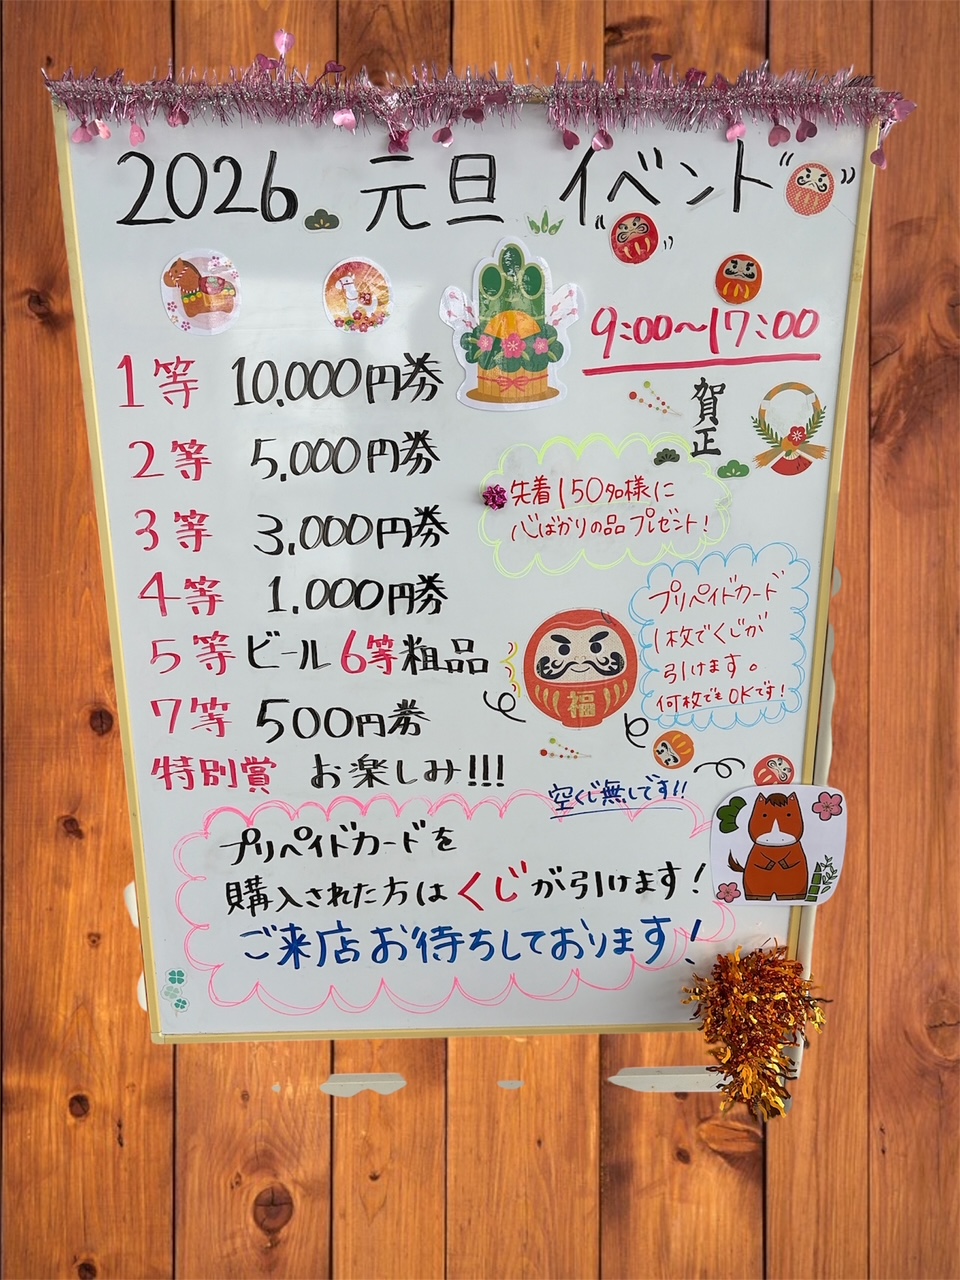 2026 元旦 イベント
9:00〜17:00
賀正
1等 10,000円券
2等 5,000円券
3等 3,000円券
4等 1,000円券
5等ビール 6等粗品
7等 500円券
特別賞 お楽しみ!!!
先着150名様に
心ばかりの品プレゼント!
プリペイドカード
1枚でくじが
引けます。
何枚でもOKです!
福
空くじ無しです!!
プリペイドカードを
購入された方はくじが引けます!
ご来店お待ちしております!